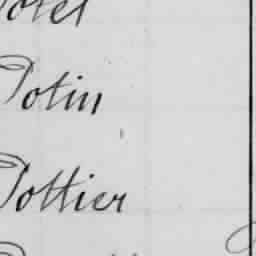 Potel
Potin
Pottier